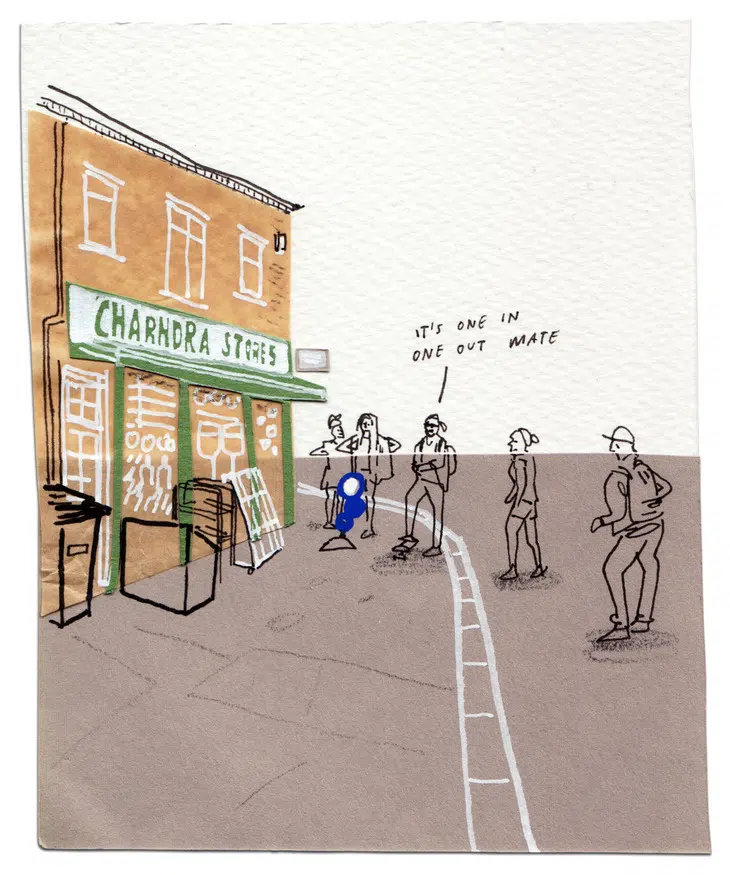 CHARNDRA STORES
IT'S ONE IN
ONE OUT MATE